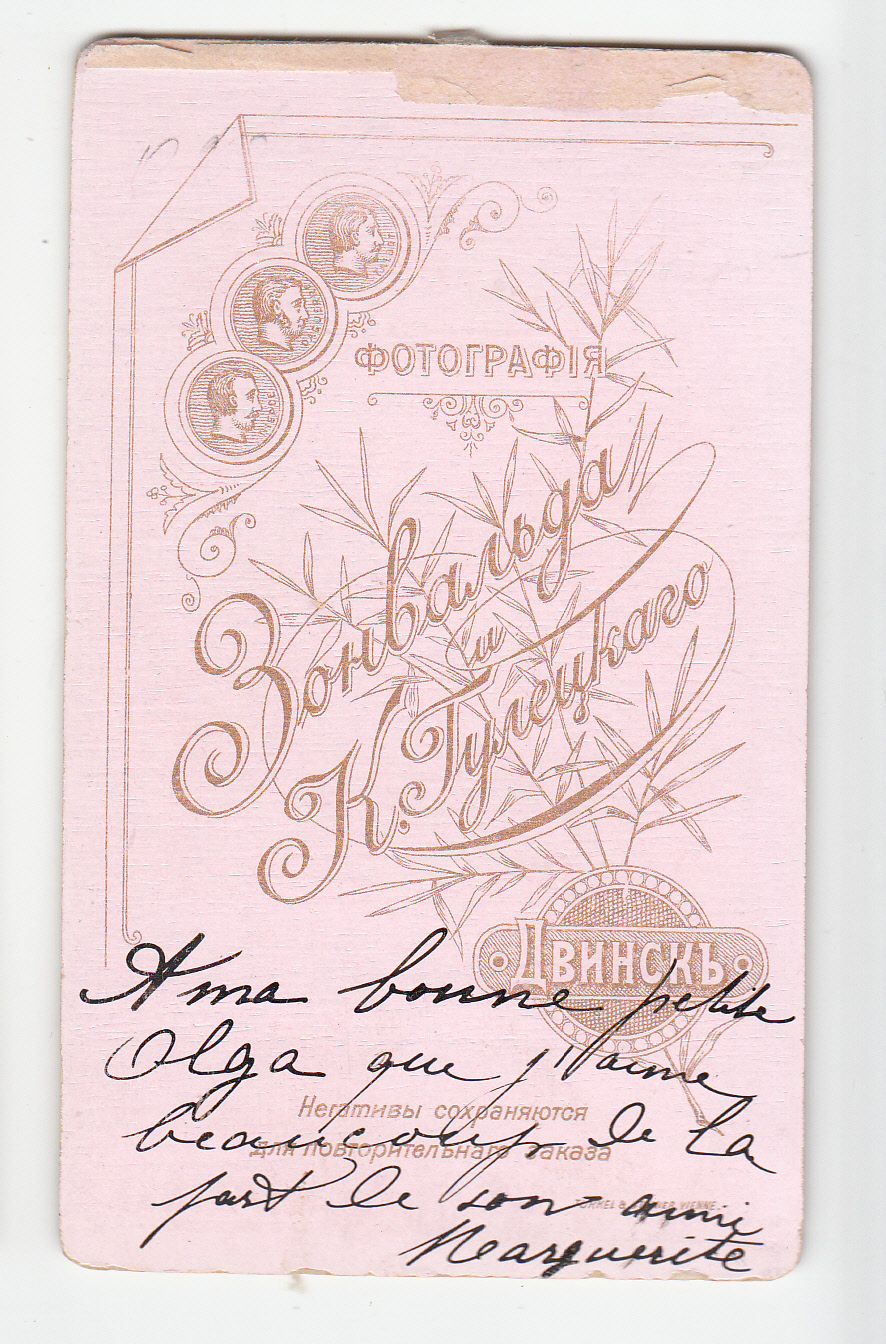 ФОТОГРАФІЯ
Зонвальда
и
К. Гулецкаго
ДВИНСКЪ
A ma bonne petite
Olga que j'aime
Негативы сохраняются
beaucoup de la
для повторительнаго заказа
part de son amie
VIENNE.
Marguerite